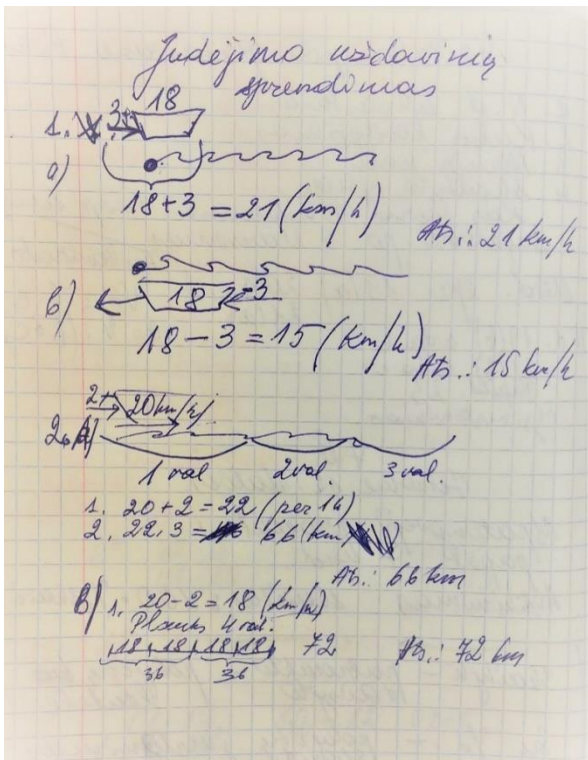 Judėjimo uždavinių
sprendimas
1. 3+ 18
a)
18+3 = 21 (km/h)
Ats.: 21 km/h
b) 18 -3
18 - 3 = 15 (km/h)
Ats.: 15 km/h
2+ 20km/h
2. a)
1 val 2val. 3 val.
1. 20+2=22 (per 1h)
2. 22.3 = 66 (km)
Ats.: 66 km
B) 1. 20-2=18 (km/h)
Plauks 4 val.
18 18 18 18 72 Ats.: 72 km
36 36